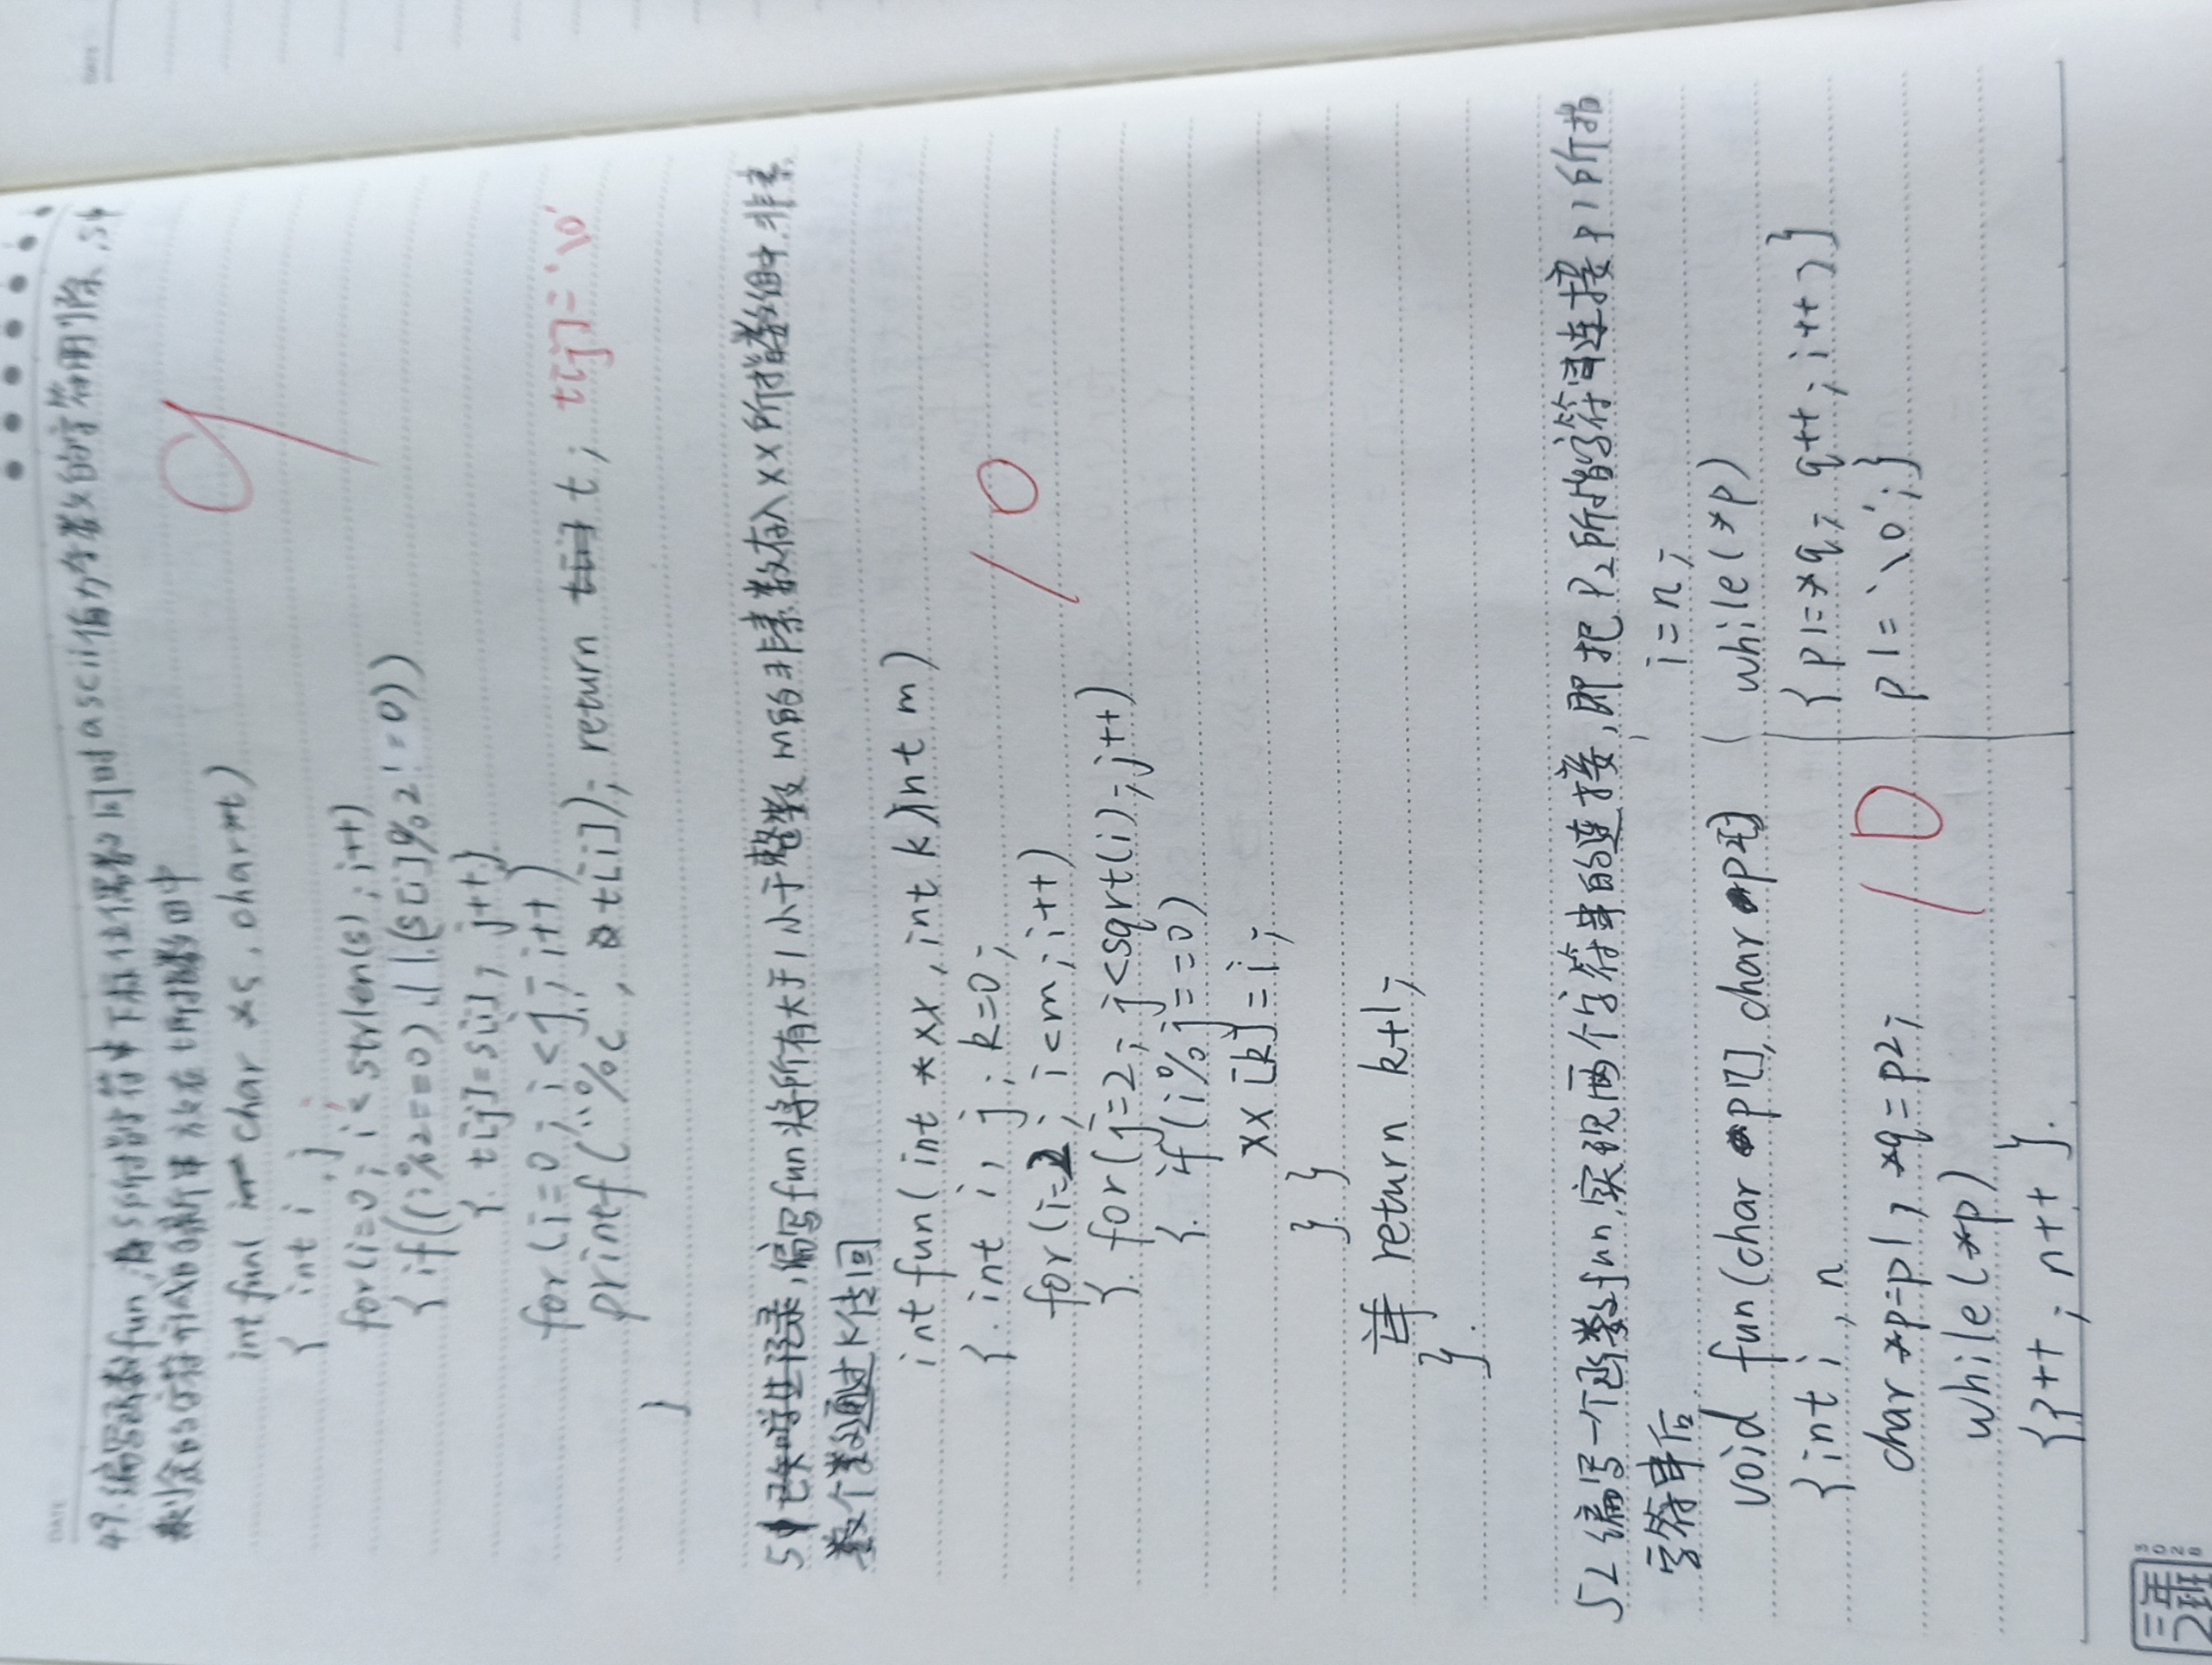 DATE
49.编写函数fun,将s所指字符串中下标位偶数同时ascii值为奇数的字符删除,s中
剩余的字符形成的新串放在t所指数组中
int fun( char *s, char *t)
{ int i, j;
for(i=0; i< strlen(s); i++)
{ if((i%2==0) || (s[i]%2!=0))
{ t[j]=s[i], j++}
for(i=0; i<j; i++)
printf("%c", t[i]); return t; t[j]='\0'
}
9
51 编写fun将所有大于1小于整数m的非素数存入xx所指数组中,非素
数个数通过k传回
int fun( int *xx, int k)int m)
{ int i, j; k=0;
for(i=2; i<m; i++)
{ for(j=2; j<sqrt(i); j++)
{ if(i%j==0)
xx[k]=i;
} }
return k+1;
}
10
52 编写一个函数fun,实现两个字符串的连接,即把P2所指字符串连接P1所指
字符串后
void fun(char p1[], char p2[])
{int i, n
char *p=p1, *q=p2;
while(*p)
{p++; n++ }.
i=n;
while(*p)
{p1=*q; q++; i++)}
p1='\0';}
10
三年
2班
3028